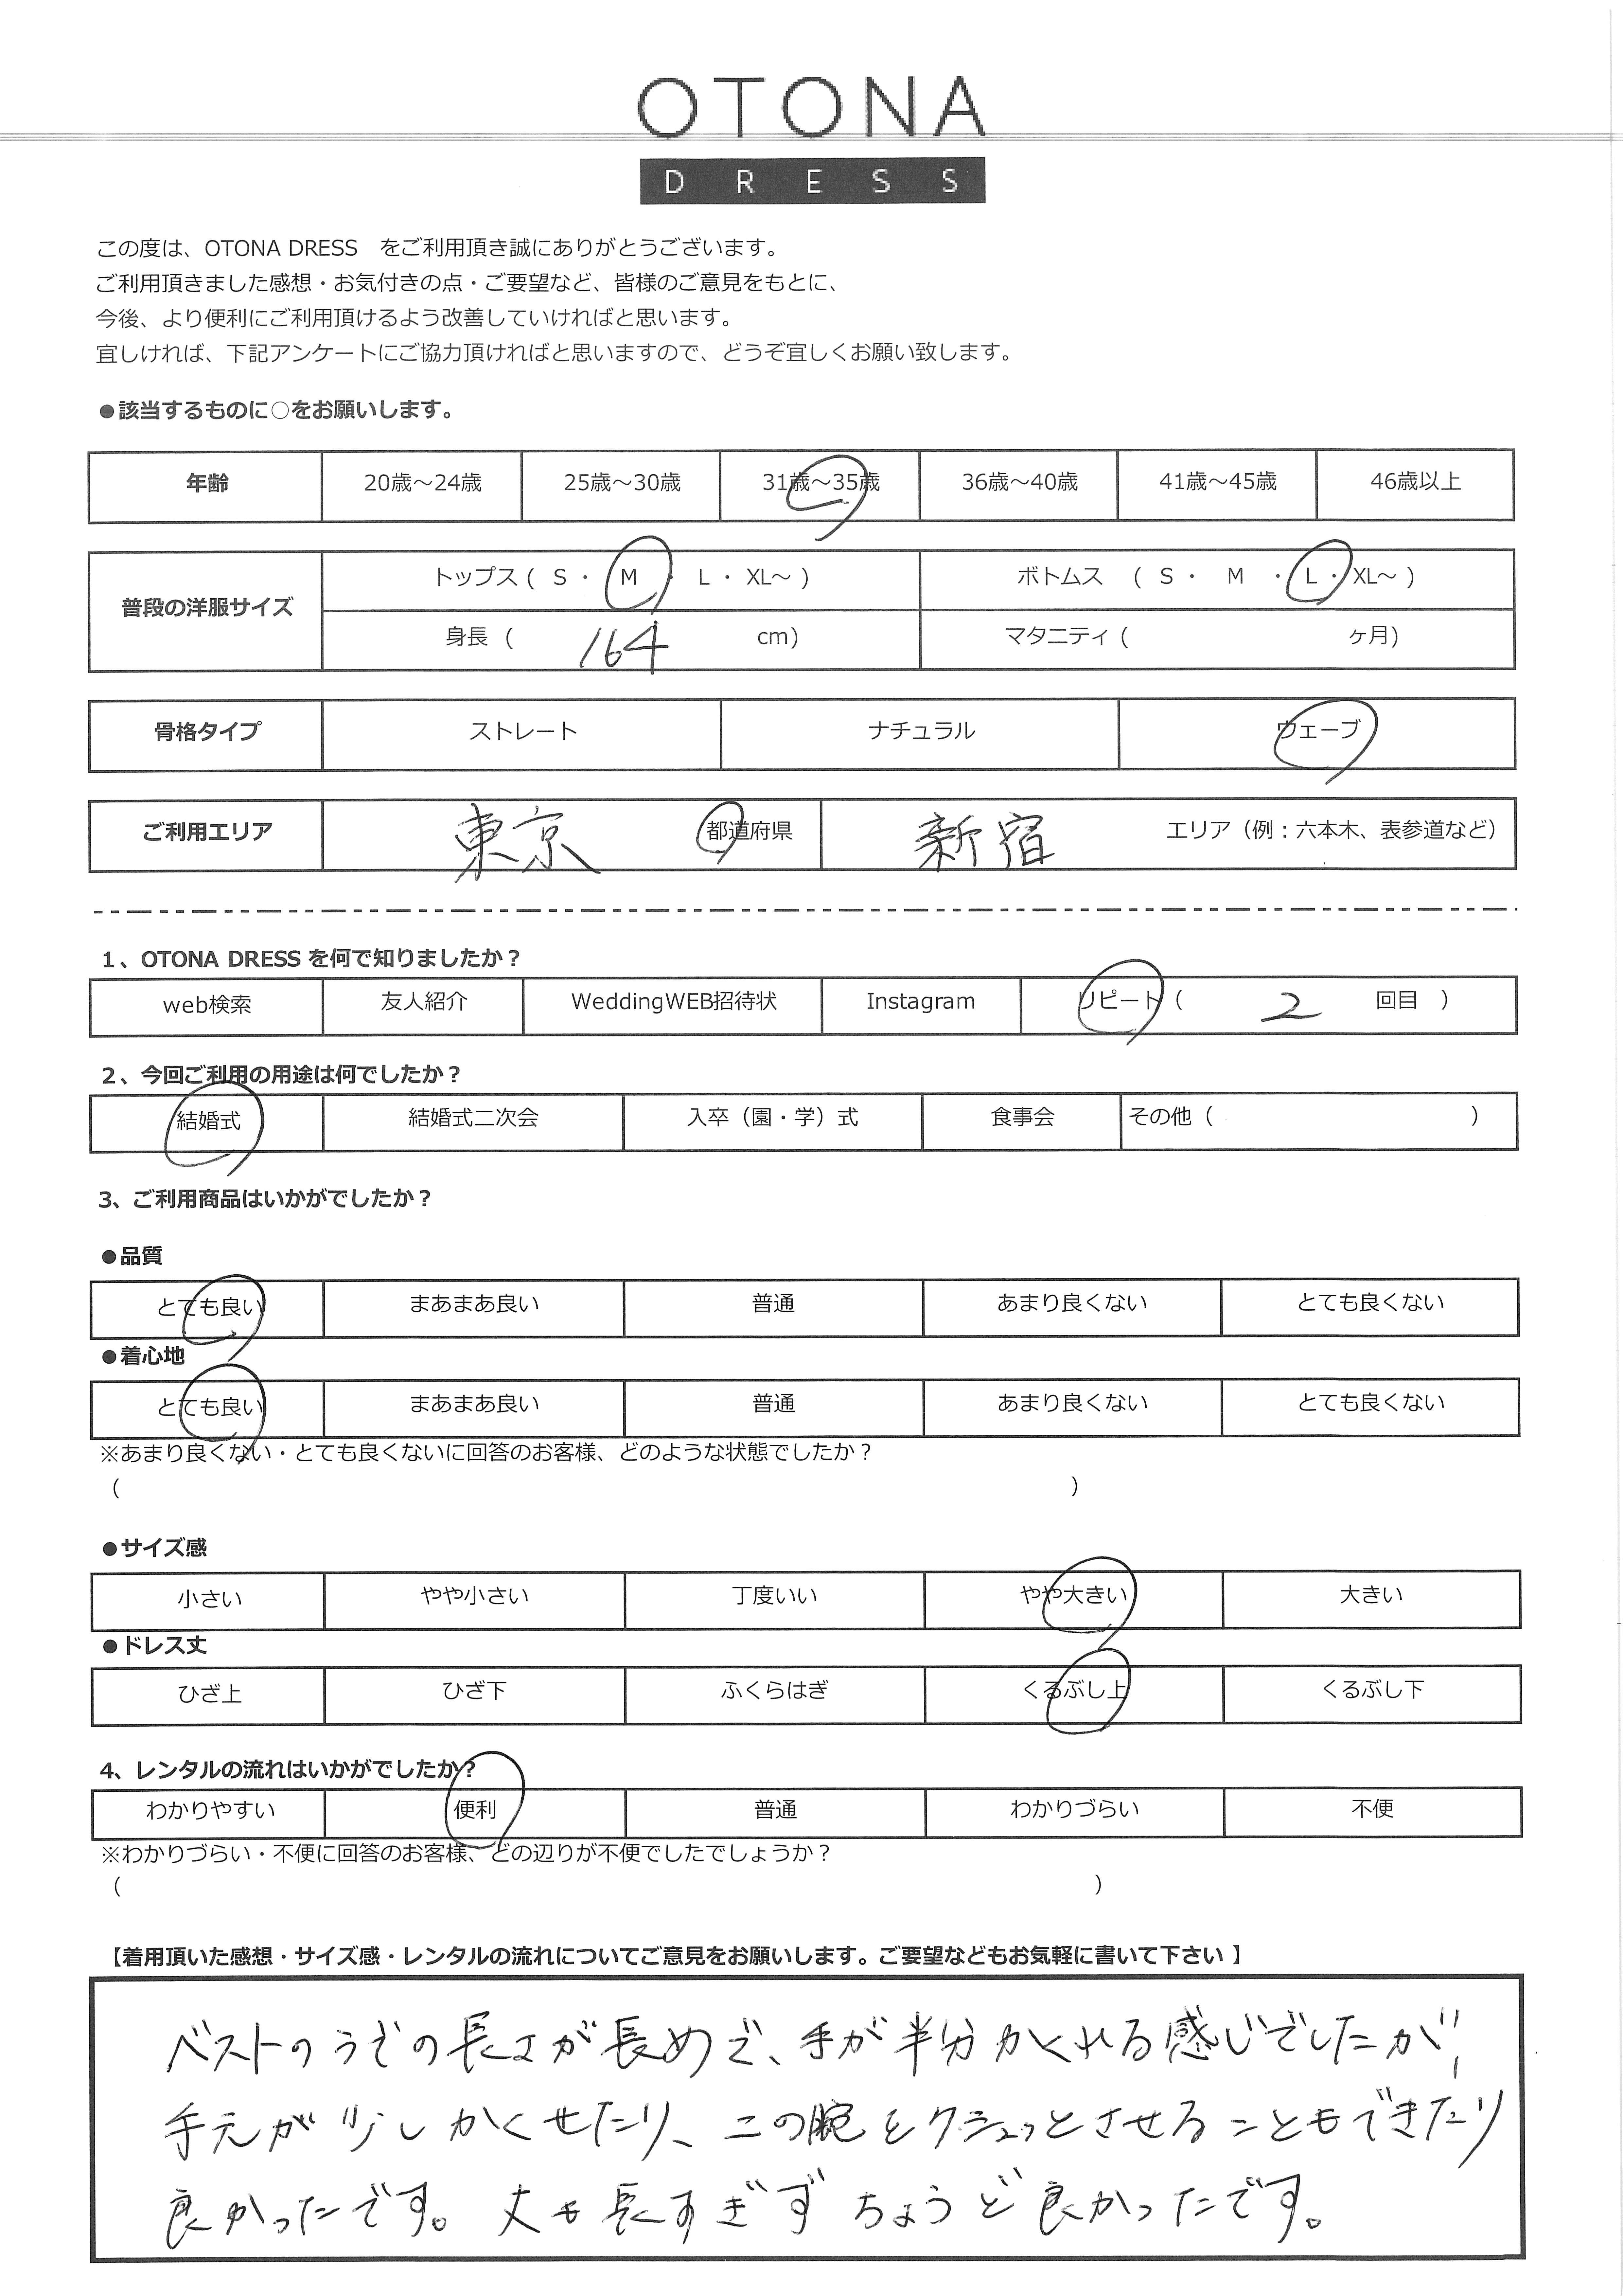 OTONA
DRESS
この度は、OTONA DRESS　をご利用頂き誠にありがとうございます。
ご利用頂きました感想・お気付きの点・ご要望など、皆様のご意見をもとに、
今後、より便利にご利用頂けるよう改善していければと思います。
宜しければ、下記アンケートにご協力頂ければと思いますので、どうぞ宜しくお願い致します。
●該当するものに○をお願いします。
年齢 20歳～24歳 25歳～30歳 31歳～35歳 36歳～40歳 41歳～45歳 46歳以上
普段の洋服サイズ トップス ( S ・ M ・ L ・ XL～ ) ボトムス ( S ・ M ・ L ・ XL～ )
身長 ( 164 cm) マタニティ ( ヶ月)
骨格タイプ ストレート ナチュラル ウェーブ
ご利用エリア 東京 都道府県 新宿 エリア（例：六本木、表参道など）
1、OTONA DRESS を何で知りましたか？
web検索 友人紹介 WeddingWEB招待状 Instagram リピート（ 2 回目 ）
2、今回ご利用の用途は何でしたか？
結婚式 結婚式二次会 入卒（園・学）式 食事会 その他（ ）
3、ご利用商品はいかがでしたか？
●品質
とても良い まあまあ良い 普通 あまり良くない とても良くない
●着心地
とても良い まあまあ良い 普通 あまり良くない とても良くない
※あまり良くない・とても良くないに回答のお客様、どのような状態でしたか？
（ ）
●サイズ感
小さい やや小さい 丁度いい やや大きい 大きい
●ドレス丈
ひざ上 ひざ下 ふくらはぎ くるぶし上 くるぶし下
4、レンタルの流れはいかがでしたか？
わかりやすい 便利 普通 わかりづらい 不便
※わかりづらい・不便に回答のお客様、どの辺りが不便でしたでしょうか？
（ ）
【着用頂いた感想・サイズ感・レンタルの流れについてご意見をお願いします。ご要望などもお気軽に書いて下さい 】
ベストのうでの長さが長めで、手が半分かくれる感じでしたが、
手元が少しかくせたり、この腕をクシュッとさせることもできたり
良かったです。丈も長すぎずちょうど良かったです。